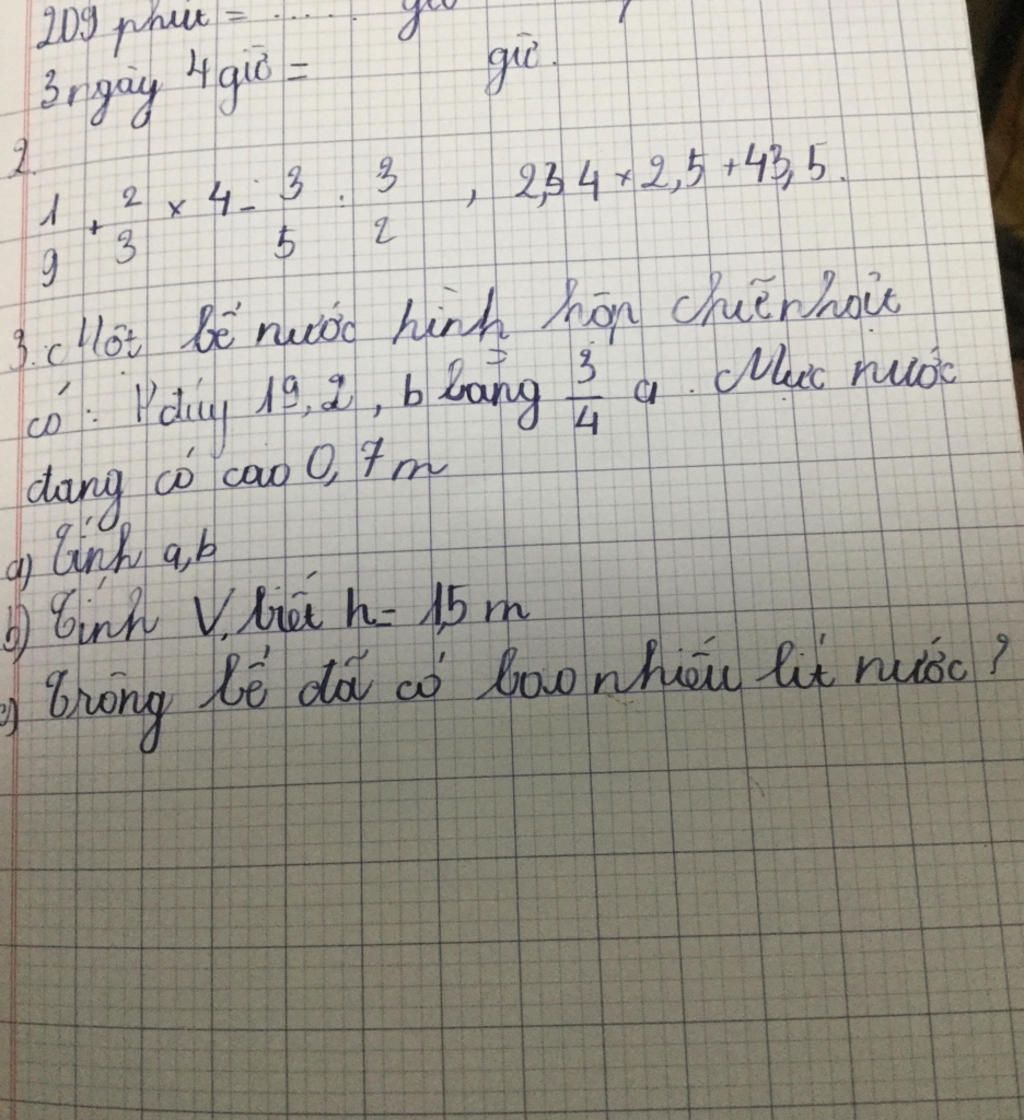 209 phút = ..... giờ
3 ngày 4 giờ = giờ.
2.
1/9 + 2/3 × 4 - 3/5 : 3/2 , 2,34 × 2,5 + 43,5.
3. Một bể nước hình hộp chữ nhật
có : P đáy 19,2, b bằng 3/4 a. Mực nước
đang có cao 0,7 m
a) Tính a,b
b) Tính V, biết h = 1,5 m
c) Trong bể đã có bao nhiêu lít nước?